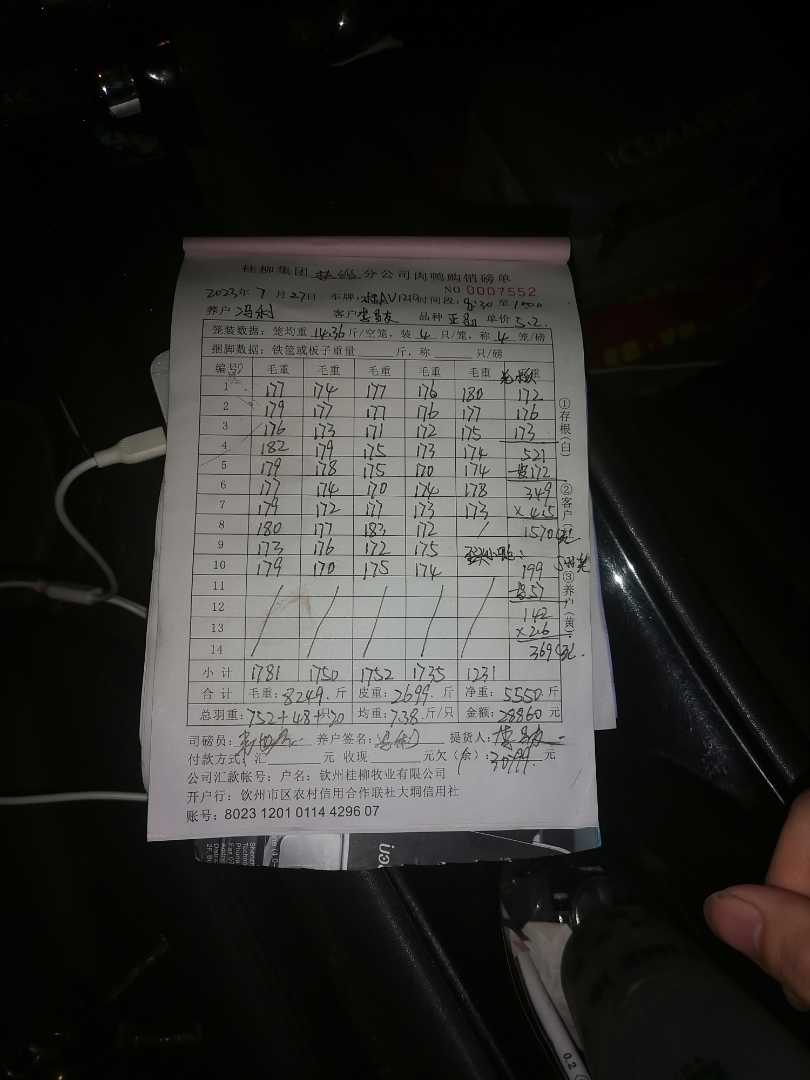 桂柳集团 分公司肉鸭购销磅单
NO 0007552
2023年7月27日 车牌: 时间段:8:30至1500
养户 冯利 客户 品种 单价 5.2
笼装数据: 笼均重 14.36 斤/空笼, 装 4 只/笼, 称 4 笼/磅
捆脚数据: 铁笼或板子重量 斤, 称 只/磅
编号 毛重 毛重 毛重 毛重 毛重
1 177 174 177 176 180 172
2 179 177 177 176 177 176
3 176 173 171 172 175 173
4 182 179 175 173 174 521
5 179 178 175 170 174 172
6 177 174 170 174 178 349
7 179 172 177 173 173 ×4.5
8 180 177 183 172 / 1570
9 173 176 172 175
10 179 170 175 174 199
11 57
12 142
13 ×2.6
14 369
小计 1781 1750 1752 1735 1231
合计 毛重:8249.斤 皮重:2699.斤 净重:5550斤
总羽重:752+48+20只 均重:7.38斤/只 金额:28860元
司磅员: 养户签名:冯利 提货人:
付款方式:汇 元 收现 元欠(余):30799.元
公司汇款帐号: 户名: 钦州桂柳牧业有限公司
开户行: 钦州市区农村信用合作联社大垌信用社
账号: 8023 1201 0114 4296 07
①存根(白)
②客户
③养户(黄)
0.2